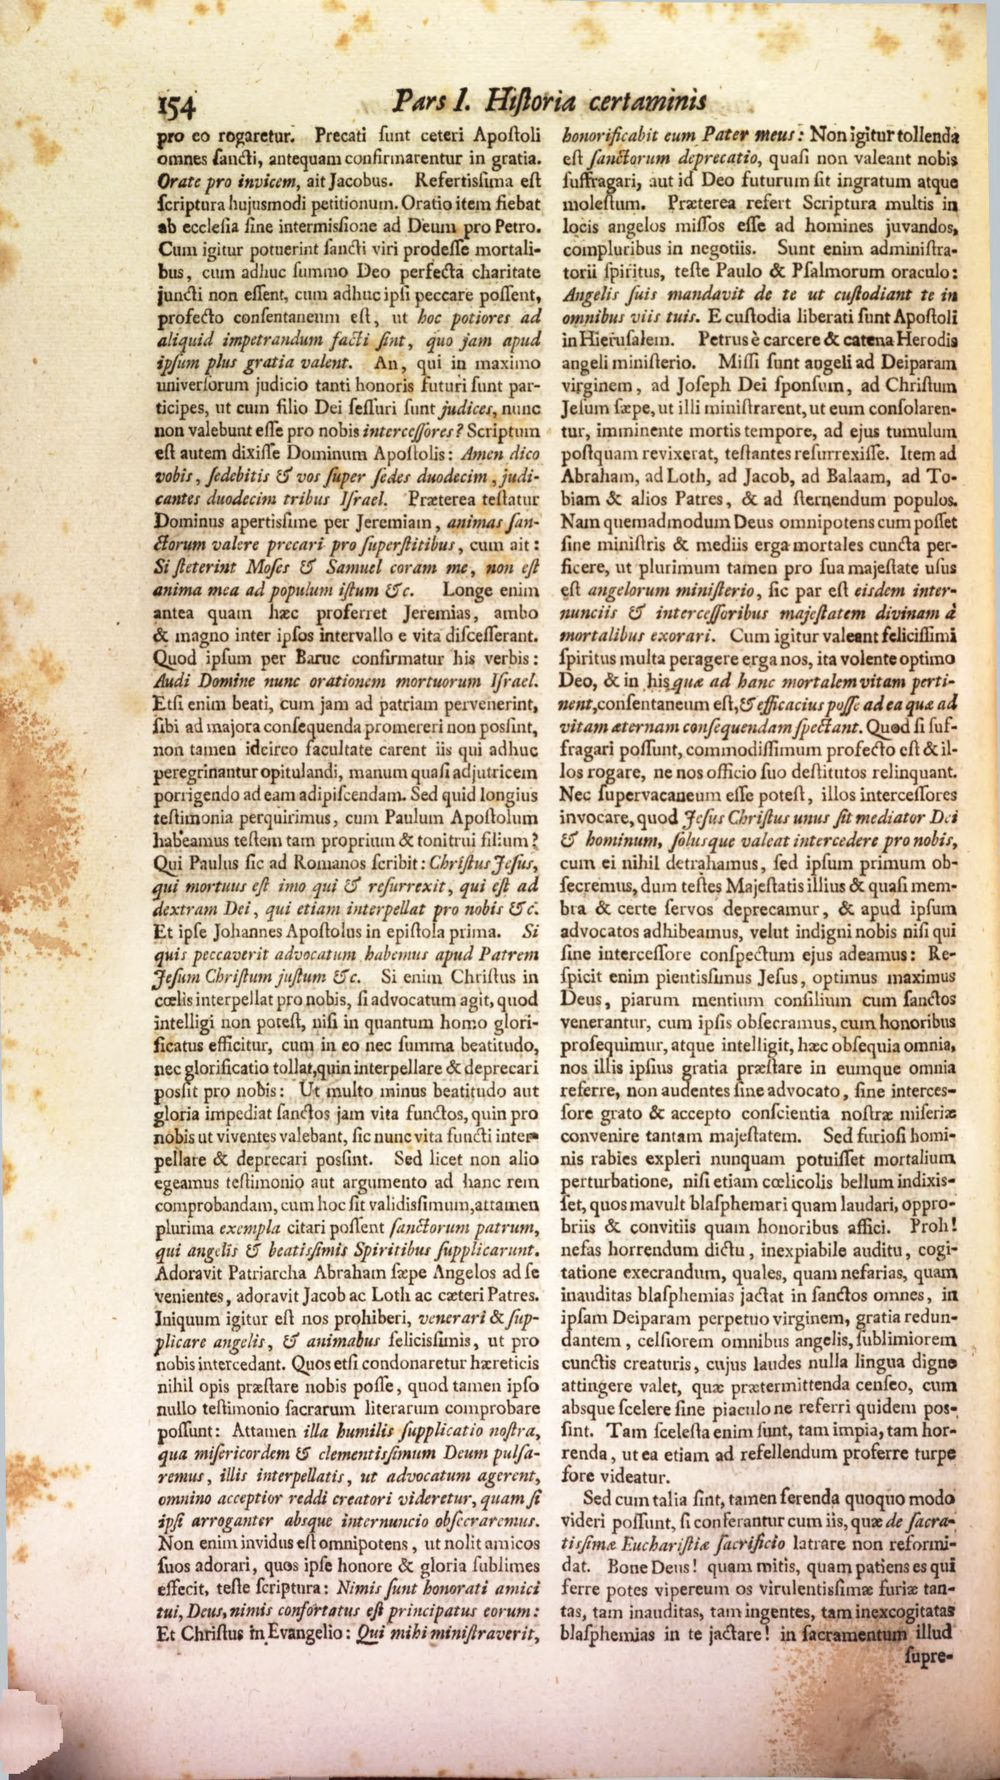 154 Pars I. Hiſtoria certaminis
pro eo rogaretur. Precati ſunt ceteri Apoſtoli
omnes ſancti, antequam confirmarentur in gratia.
Orate pro invicem, ait Jacobus. Refertiſſima eſt
ſcriptura hujusmodi petitionum. Oratio item fiebat
ab eccleſia ſine intermiſſione ad Deum pro Petro.
Cum igitur potuerint ſancti viri prodeſſe mortali-
bus, cum adhuc ſummo Deo perfecta charitate
juncti non eſſent, cum adhuc ipſi peccare poſſent,
profecto conſentaneum eſt, ut hoc potiores ad
aliquid impetrandum facti ſint, quo jam apud
ipſum plus gratia valent. An, qui in maximo
univerſorum judicio tanti honoris futuri ſunt par-
ticipes, ut cum filio Dei ſeſſuri ſunt judices, nunc
non valebunt eſſe pro nobis interceſſores? Scriptum
eſt autem dixiſſe Dominum Apoſtolis: Amen dico
vobis, ſedebitis & vos ſuper ſedes duodecim, judi-
cantes duodecim tribus Iſrael. Præterea teſtatur
Dominus apertiſſime per Jeremiam, animas ſan-
ctorum valere precari pro ſuperſtitibus, cum ait:
Si ſteterint Moſes & Samuel coram me, non eſt
anima mea ad populum iſtum &c. Longe enim
antea quam hæc proferret Jeremias, ambo
& magno inter ipſos intervallo e vita diſceſſerant.
Quod ipſum per Baruc confirmatur his verbis:
Audi Domine nunc orationem mortuorum Iſrael.
Etſi enim beati, cum jam ad patriam pervenerint,
ſibi ad majora conſequenda promereri non poſſint,
non tamen idcirco facultate carent iis qui adhuc
peregrinantur opitulandi, manum quaſi adjutricem
porrigendo ad eam adipiſcendam. Sed quid longius
teſtimonia perquirimus, cum Paulum Apoſtolum
habeamus teſtem tam proprium & tonitrui filium?
Qui Paulus ſic ad Romanos ſcribit: Chriſtus Jeſus,
qui mortuus eſt imo qui & reſurrexit, qui eſt ad
dextram Dei, qui etiam interpellat pro nobis &c.
Et ipſe Johannes Apoſtolus in epiſtola prima. Si
quis peccaverit advocatum habemus apud Patrem
Jeſum Chriſtum juſtum &c. Si enim Chriſtus in
cœlis interpellat pro nobis, ſi advocatum agit, quod
intelligi non poteſt, niſi in quantum homo glori-
ficatus efficitur, cum in eo nec ſumma beatitudo,
nec glorificatio tollat, quin interpellare & deprecari
poſſit pro nobis: Ut multo minus beatitudo aut
gloria impediat ſanctos jam vita functos, quin pro
nobis ut viventes valebant, ſic nunc vita functi inter-
pellare & deprecari poſſint. Sed licet non alio
egeamus teſtimonio aut argumento ad hanc rem
comprobandam, cum hoc ſit validiſſimum, attamen
plurima exempla citari poſſent ſanctorum patrum,
qui angelis & beatiſſimis Spiritibus ſupplicarunt.
Adoravit Patriarcha Abraham ſæpe Angelos ad ſe
venientes, adoravit Jacob ac Loth ac cæteri Patres.
Iniquum igitur eſt nos prohiberi, venerari & ſup-
plicare angelis, & animabus feliciſſimis, ut pro
nobis intercedant. Quos etſi condonaretur hæreticis
nihil opis præſtare nobis poſſe, quod tamen ipſo
nullo teſtimonio ſacrarum literarum comprobare
poſſunt: Attamen illa humilis ſupplicatio noſtra,
qua miſericordem & clementiſſimum Deum pulſa-
remus, illis interpellatis, ut advocatum agerent,
omnino acceptior reddi creatori videretur, quam ſi
ipſi arroganter absque internuncio obſecraremus.
Non enim invidus eſt omnipotens, ut nolit amicos
ſuos adorari, quos ipſe honore & gloria ſublimes
effecit, teſte ſcriptura: Nimis ſunt honorati amici
tui, Deus, nimis confortatus eſt principatus eorum:
Et Chriſtus in Evangelio: Qui mihi miniſtraverit,
honorificabit eum Pater meus: Non igitur tollenda
eſt ſanctorum deprecatio, quaſi non valeant nobis
ſuffragari, aut id Deo futurum ſit ingratum atque
moleſtum. Præterea refert Scriptura multis in
locis angelos miſſos eſſe ad homines juvandos,
compluribus in negotiis. Sunt enim adminiſtra-
torii ſpiritus, teſte Paulo & Pſalmorum oraculo:
Angelis ſuis mandavit de te ut cuſtodiant te in
omnibus viis tuis. E cuſtodia liberati ſunt Apoſtoli
in Hieruſalem. Petrus è carcere & catena Herodis
angeli miniſterio. Miſſi ſunt angeli ad Deiparam
virginem, ad Joſeph Dei ſponſum, ad Chriſtum
Jeſum ſæpe, ut illi miniſtrarent, ut eum conſolaren-
tur, imminente mortis tempore, ad ejus tumulum
poſtquam revixerat, teſtantes reſurrexiſſe. Item ad
Abraham, ad Loth, ad Jacob, ad Balaam, ad To-
biam & alios Patres, & ad ſternendum populos.
Nam quemadmodum Deus omnipotens cum poſſet
ſine miniſtris & mediis erga mortales cuncta per-
ficere, ut plurimum tamen pro ſua majeſtate uſus
eſt angelorum miniſterio, ſic par eſt eisdem inter-
nunciis & interceſſoribus majeſtatem divinam à
mortalibus exorari. Cum igitur valeant feliciſſimi
ſpiritus multa peragere erga nos, ita volente optimo
Deo, & in his quæ ad hanc mortalem vitam perti-
nent, conſentaneum eſt, & efficacius poſſe ad ea quæ ad
vitam æternam conſequendam ſpectant. Quod ſi ſuf-
fragari poſſunt, commodiſſimum profecto eſt & il-
los rogare, ne nos officio ſuo deſtitutos relinquant.
Nec ſupervacaneum eſſe poteſt, illos interceſſores
invocare, quod Jeſus Chriſtus unus ſit mediator Dei
& hominum, ſolusque valeat intercedere pro nobis,
cum ei nihil detrahamus, ſed ipſum primum ob-
ſecremus, dum teſtes Majeſtatis illius & quaſi mem-
bra & certe ſervos deprecamur, & apud ipſum
advocatos adhibeamus, velut indigni nobis niſi qui
ſine interceſſore conſpectum ejus adeamus: Re-
ſpicit enim pientiſſimus Jeſus, optimus maximus
Deus, piarum mentium conſilium cum ſanctos
venerantur, cum ipſis obſecramus, cum honoribus
proſequimur, atque intelligit, hæc obſequia omnia,
nos illis ipſius gratia præſtare in eumque omnia
referre, non audentes ſine advocato, ſine interceſ-
ſore grato & accepto conſcientia noſtræ miſeriæ
convenire tantam majeſtatem. Sed furioſi homi-
nis rabies expleri nunquam potuiſſet mortalium
perturbatione, niſi etiam cœlicolis bellum indixiſ-
ſet, quos mavult blaſphemari quam laudari, oppro-
briis & convitiis quam honoribus affici. Proh!
nefas horrendum dictu, inexpiabile auditu, cogi-
tatione execrandum, quales, quam nefarias, quam
inauditas blaſphemias jactat in ſanctos omnes, in
ipſam Deiparam perpetuo virginem, gratia redun-
dantem, celſiorem omnibus angelis, ſublimiorem
cunctis creaturis, cujus laudes nulla lingua digne
attingere valet, quæ prætermittenda cenſeo, cum
absque ſcelere ſine piaculo ne referri quidem poſ-
ſint. Tam ſceleſta enim ſunt, tam impia, tam hor-
renda, ut ea etiam ad refellendum proferre turpe
fore videatur.
Sed cum talia ſint, tamen ferenda quoquo modo
videri poſſunt, ſi conferantur cum iis, quæ de ſacra-
tiſſimæ Euchariſtiæ ſacrificio latrare non reformi-
dat. Bone Deus! quam mitis, quam patiens es qui
ferre potes vipereum os virulentiſſimæ furiæ tan-
tas, tam inauditas, tam ingentes, tam inexcogitatas
blaſphemias in te jactare! in ſacramentum illud
ſupre-